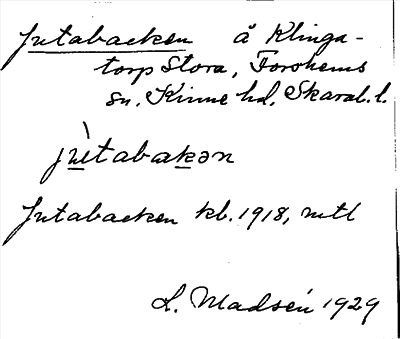 Jutabacken å Klinga-
torp Stora, Forshems
sn, Kinne hd, Skarab. l.
jùtabakən
Jutabacken kb. 1918, mtl
L. Madsén 1929